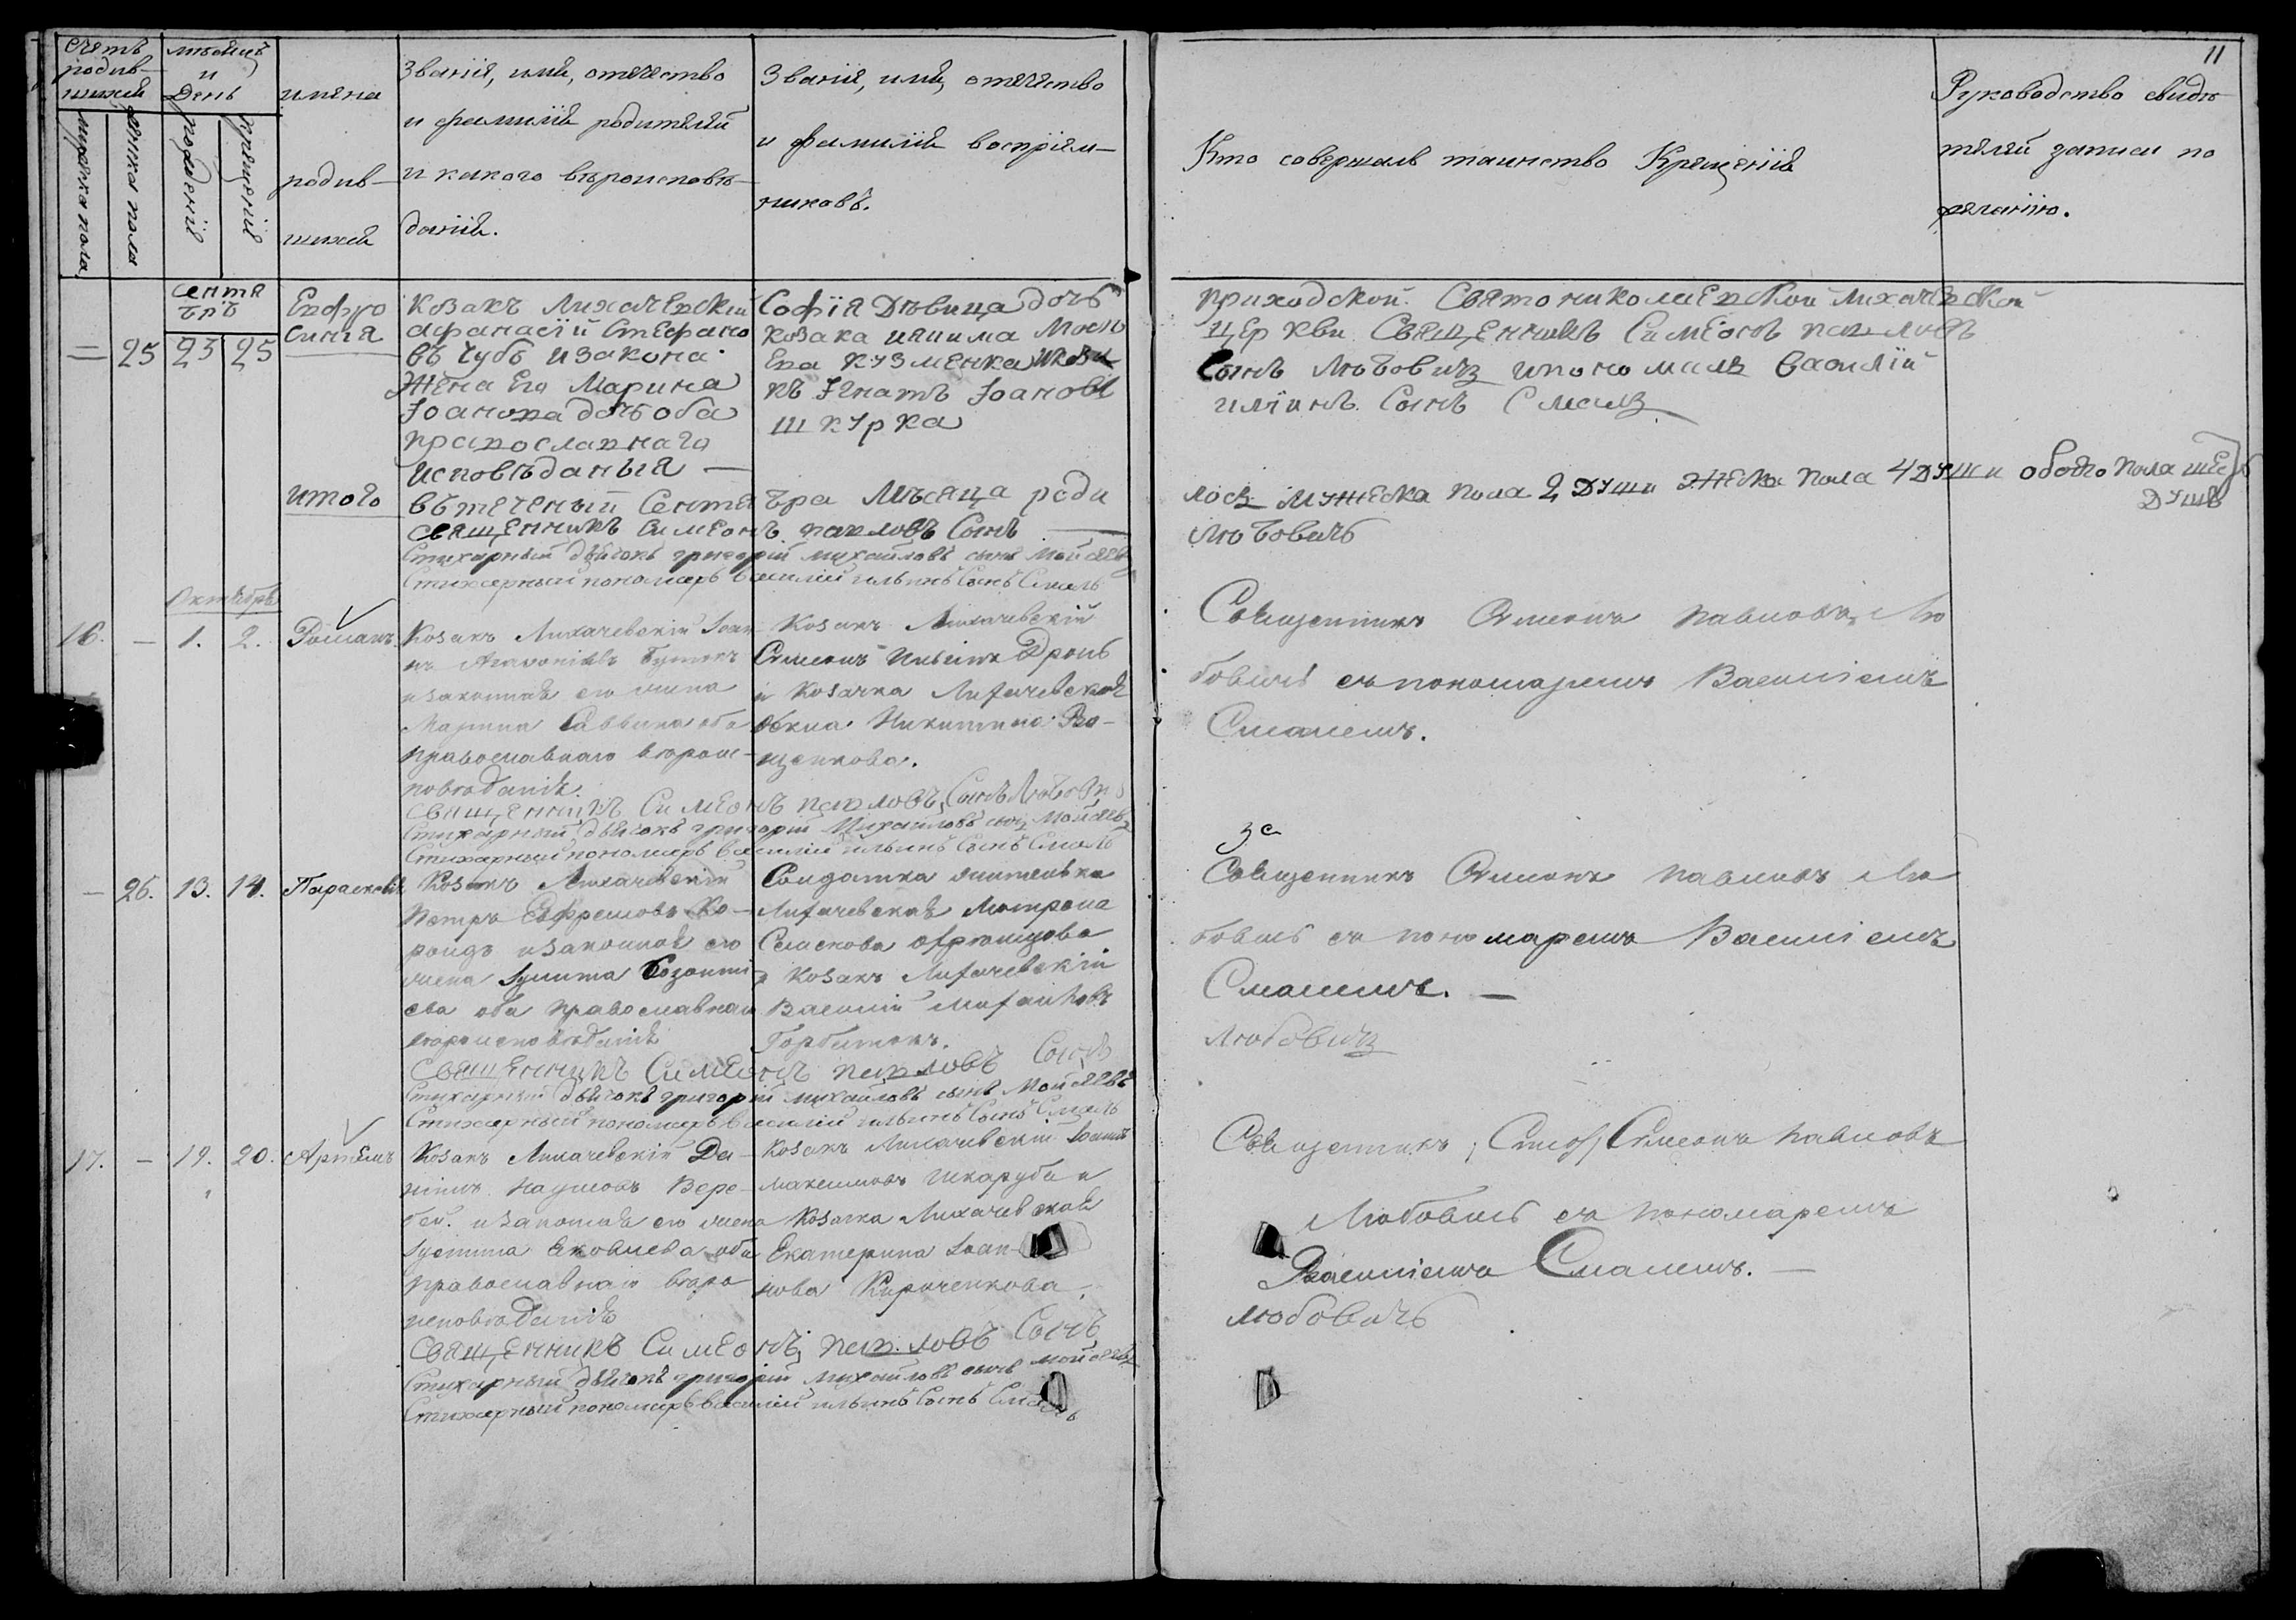 11
Счетъ родив-
шихся
мѣсяцъ
и
День
имена
родив-
шихся
Званія, имя, отечество
и фамилія родителей
и какого вѣроисповѣ-
данія.
Званія, имя, отечество
и фамилія воспріем-
никовъ.
Кто совершалъ таинство Крещенія
Руководство свидѣ
телей записи по
желанію.
мужеска пола
женска пола
рожденія
крещенія
сентя
брь
25 23 25
Евфро
синія
козакъ Лихачевскій
афанасій Стефано
въ Чубъ изакона
Жена Его Марина
Іоанова дочь оба
православнаго
исповѣданыя —
Софія Дѣвица дочь
козака иякима Мось
Ева кузменка икоза
къ Игнатъ Іоановъ
шкурка
приходской Святониколаевской лихачевской
церкви Священникъ Симеонъ павловъ
Сынъ Любовичъ ипономаръ василій
иліинъ Сынъ Смаль
итого
вътечении Сентября Мѣсяца роди
лось Мужеска пола 2 души Женска пола 4 души обоего пола шесть
душъ
священникъ Симеонъ павловъ Сынъ — Любовичъ
Стихарный дьячокъ григорій михайловъ сынъ Мойсеевъ
Стихарный пономарь василий ильинъ Сынъ Смаль
Октября
16. — 1. 2. Романъ
Козакъ Лихачевскій Іоан
нъ Агафоніевъ Бутокъ
изаконная его жена
Марина Саввина оба
православнаго вѣроис-
повѣданія.
Козакъ Лихачевскій
Симеонъ Ильинъ Дронь
и Козачка Лихачевская
Фекла Никитина Во-
щенкова.
Священникъ Симеонъ Павловъ Лю
бовичъ съ пономаремъ Василіемъ
Смалемъ.
Священникъ Симеонъ павловъ Сынъ Любович
Стихарный дьячокъ григорій Михайловъ сынъ Мойсеевъ
Стихарный пономарь василий ильинъ Сынъ Смаль
— 26. 13. 14. Параскевія
Козакъ Лихачевскій
Петръ Ефремовъ Ко-
роидъ изаконная его
жена Іулитта
ева оба православнаго
вѣроисповѣданія
Солдатка жителька
Лихачевская Матрона
Семенова Афтомцова
и козакъ Лихачевскій
Василій Михайловъ
Горбатокъ.
за
Священникъ Симеонъ Павловъ Лю
бовичъ съ пономаремъ Василіемъ
Смалемъ. —
Любовичъ
Священникъ Симеонъ павловъ Сынъ
Стихарный дьячокъ григорій михайловъ сынъ Мойсеевъ
Стихарный пономарь василий ильинъ Сынъ Смаль
17. — 19. 20. Артемъ
Козакъ Лихачевскій Да-
ніилъ Наумовъ Вере-
бей. изаконная его жена
Іустина Яковлева оба
православнаго вѣро
исповѣданія
Козакъ Лихачевскій Іоаннъ
Максимовъ Шкаруба и
Козачка Лихачевская
Екатерина Іоан-
нова Кириченкова.
Священникъ, Симеонъ Павловъ
Любовичъ съ пономаремъ
Василіемъ Смалемъ. —
Любовичъ
Священникъ Симеонъ павловъ Сынъ
Стихарный дьячокъ григорій михайловъ сынъ мойсеевъ
Стихарный пономарь василий ильинъ Сынъ Смаль